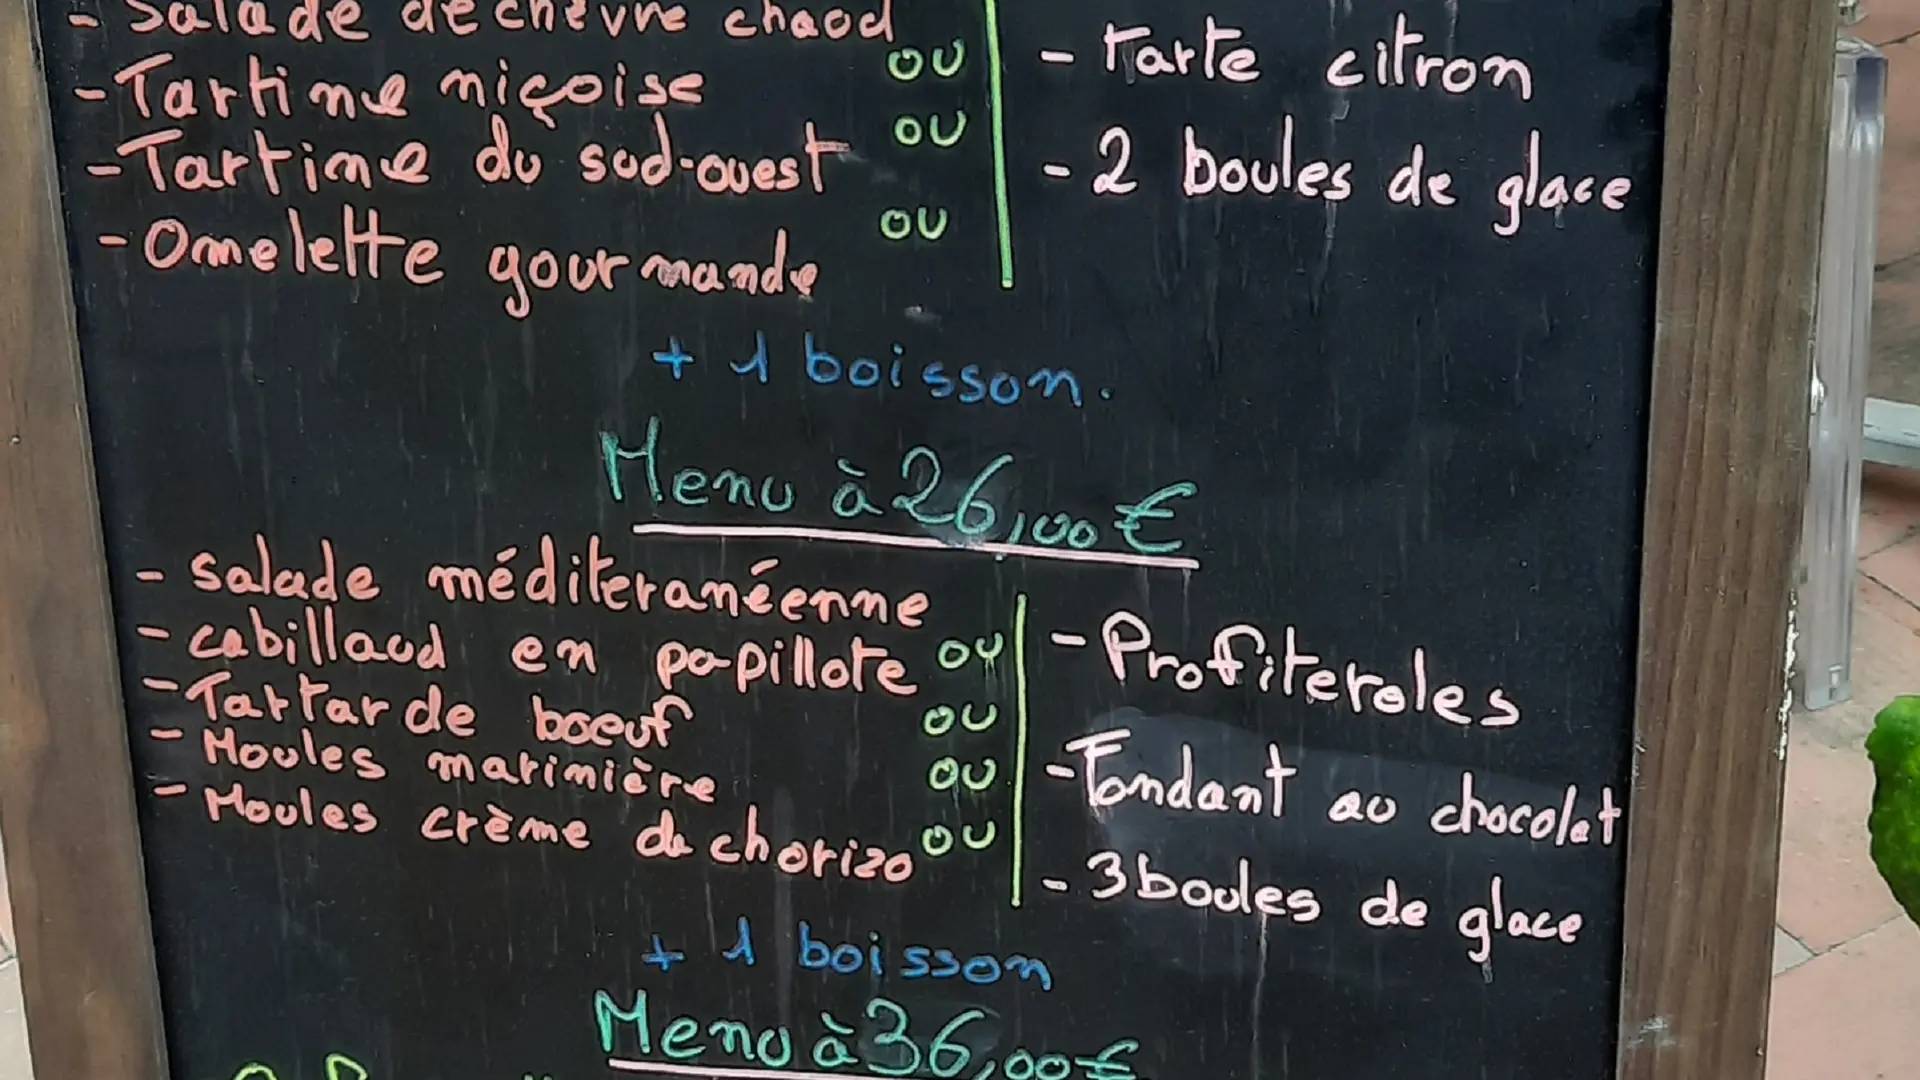 - Salade de chèvre chaud
- Tartine niçoise ou
- Tartine du sud-ouest ou
- Omelette gourmande ou
- Tarte citron
- 2 boules de glace
+ 1 boisson.
Menu à 26,00 €
- Salade méditeranéenne
- cabillaud en papillote ou
- Tartar de boeuf ou
- Moules marinière ou
- Moules crème de chorizo ou
- Profiteroles
- Fondant au chocolat
- 3 boules de glace
+ 1 boisson
Menu à 36,00 €